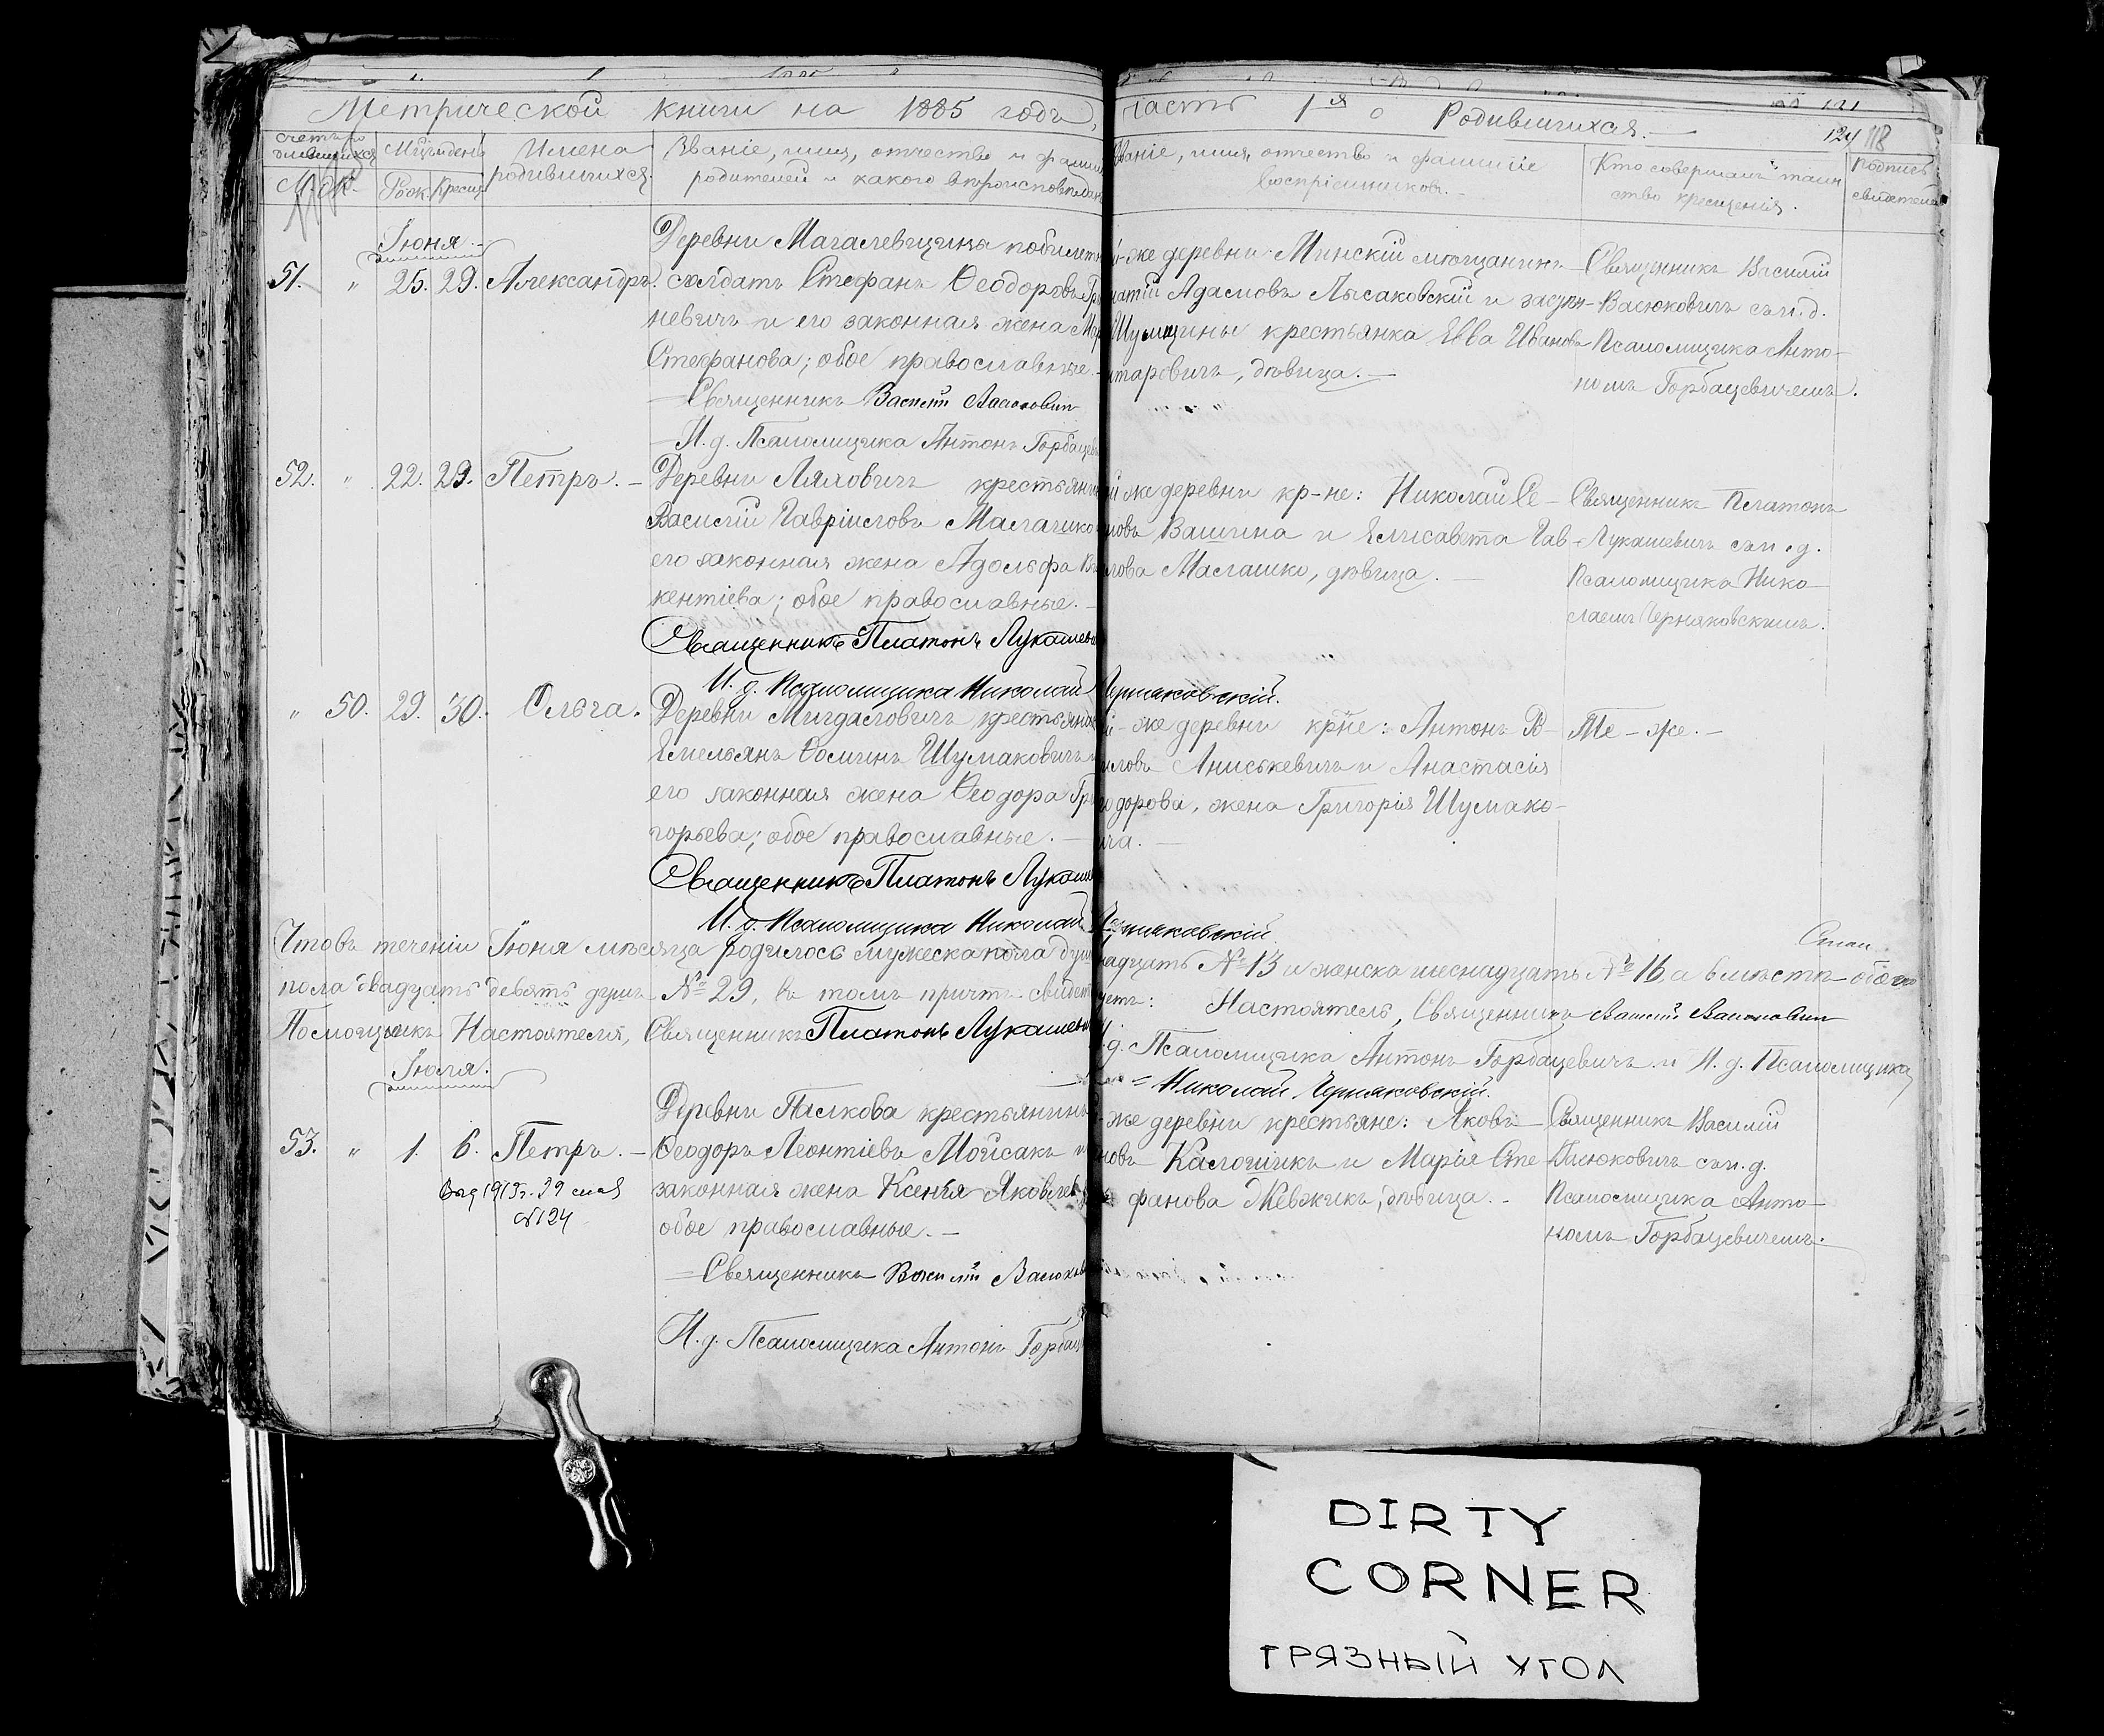 Метрической книги на 1885 годъ,
часть 1я о Родившихся.
124 118
Счетъ родившихся
Мѣсяцъ и день
Имена родившихся.
Званіе, имя, отчество и фамилія
родителей и какого вѣроисповѣданія
Званіе, имя, отчество и фамилія
воспріемниковъ.
Кто совершалъ таин
ство крещенія.
Подпись
свидетелей
М. Ж.
Рожд. Крещ.
Іюня.
51. " 25. 29. Александръ.
Деревни Магалевщины
солдатъ Стефанъ Ѳеодоровъ
невичъ и его законная жена
Стефанова; обое православные.
Священникъ Василій Васюковичъ
И. д. Псаломщика Антонъ Горбацев
же деревни Минскій мѣщанинъ
Адамовъ Лысаковскій и
Шумщины крестьянка Евва Иванова
дѣвица.
Священникъ Василій
Васюковичъ съ и. д.
Псаломщика Анто-
номъ Горбацевичемъ.
52. " 22. 29. Петръ.
Деревни Ляховичъ крестьянинъ
Василій Гавріиловъ Малашко
его законная жена Адольфа Ви
кентіева; обое православные.
Священникъ Платонъ Лукашеви
И. д. Псаломщика Николай Черняковскій.
й же деревни кр-не: Николай Се-
новъ Вашина и Елисавета Гав-
лова Малашко, дѣвица.
Священникъ Платонъ
Лукашевичъ съ и. д.
Псаломщика Нико-
лаемъ Черняковскимъ.
" 50. 29. 30. Ольга.
Деревни Мигдаловичъ крестьянинъ
Емельянъ Ѳоминъ Шумаковичъ и
его законная жена Ѳеодора Гри
горьева; обое православные.
Священникъ Платонъ Лукаше
И. д. Псаломщика Николай Черняковскій
й-же деревни крне: Антонъ В-
иловъ Аниськевичъ и Анастасія
одорова, жена Григорія Шумако-
ича.
Тѣ-же.
Что въ теченіи Іюня мѣсяца родилось мужеска пола душъ
надцать № 13 и женска шеснадцать № 16, а вмѣстѣ обоего
пола двадцать девять душъ № 29, въ томъ причтъ свидет
уетъ: Настоятель, Священникъ Василій Васюковичъ
Помощникъ Настоятеля, Священникъ Платонъ Лукашеви
И. д. Псаломщика Антонъ Горбацевичъ и И. д. Псаломщика
Николай Черняковскій.
Іюля.
53. " 1. 6. Петръ.
Выд 1913г. 29 мая
№124
Деревни Палкова крестьянинъ
Ѳеодоръ Леонтіевъ Мойсакъ и
законная жена Ксенія Яковлев
обое православные.
Священникъ Василій Васюков
И. д. Псаломщика Антонъ Горбаце
же деревни крестьяне: Яковъ
новъ Калошикъ и Марія Сте
фанова Жевжикъ, дѣвица.
Священникъ Василій
Васюковичъ съ и. д.
Псаломщика Анто-
номъ Горбацевичемъ.
DIRTY
CORNER
ГРЯЗНЫЙ УГОЛ